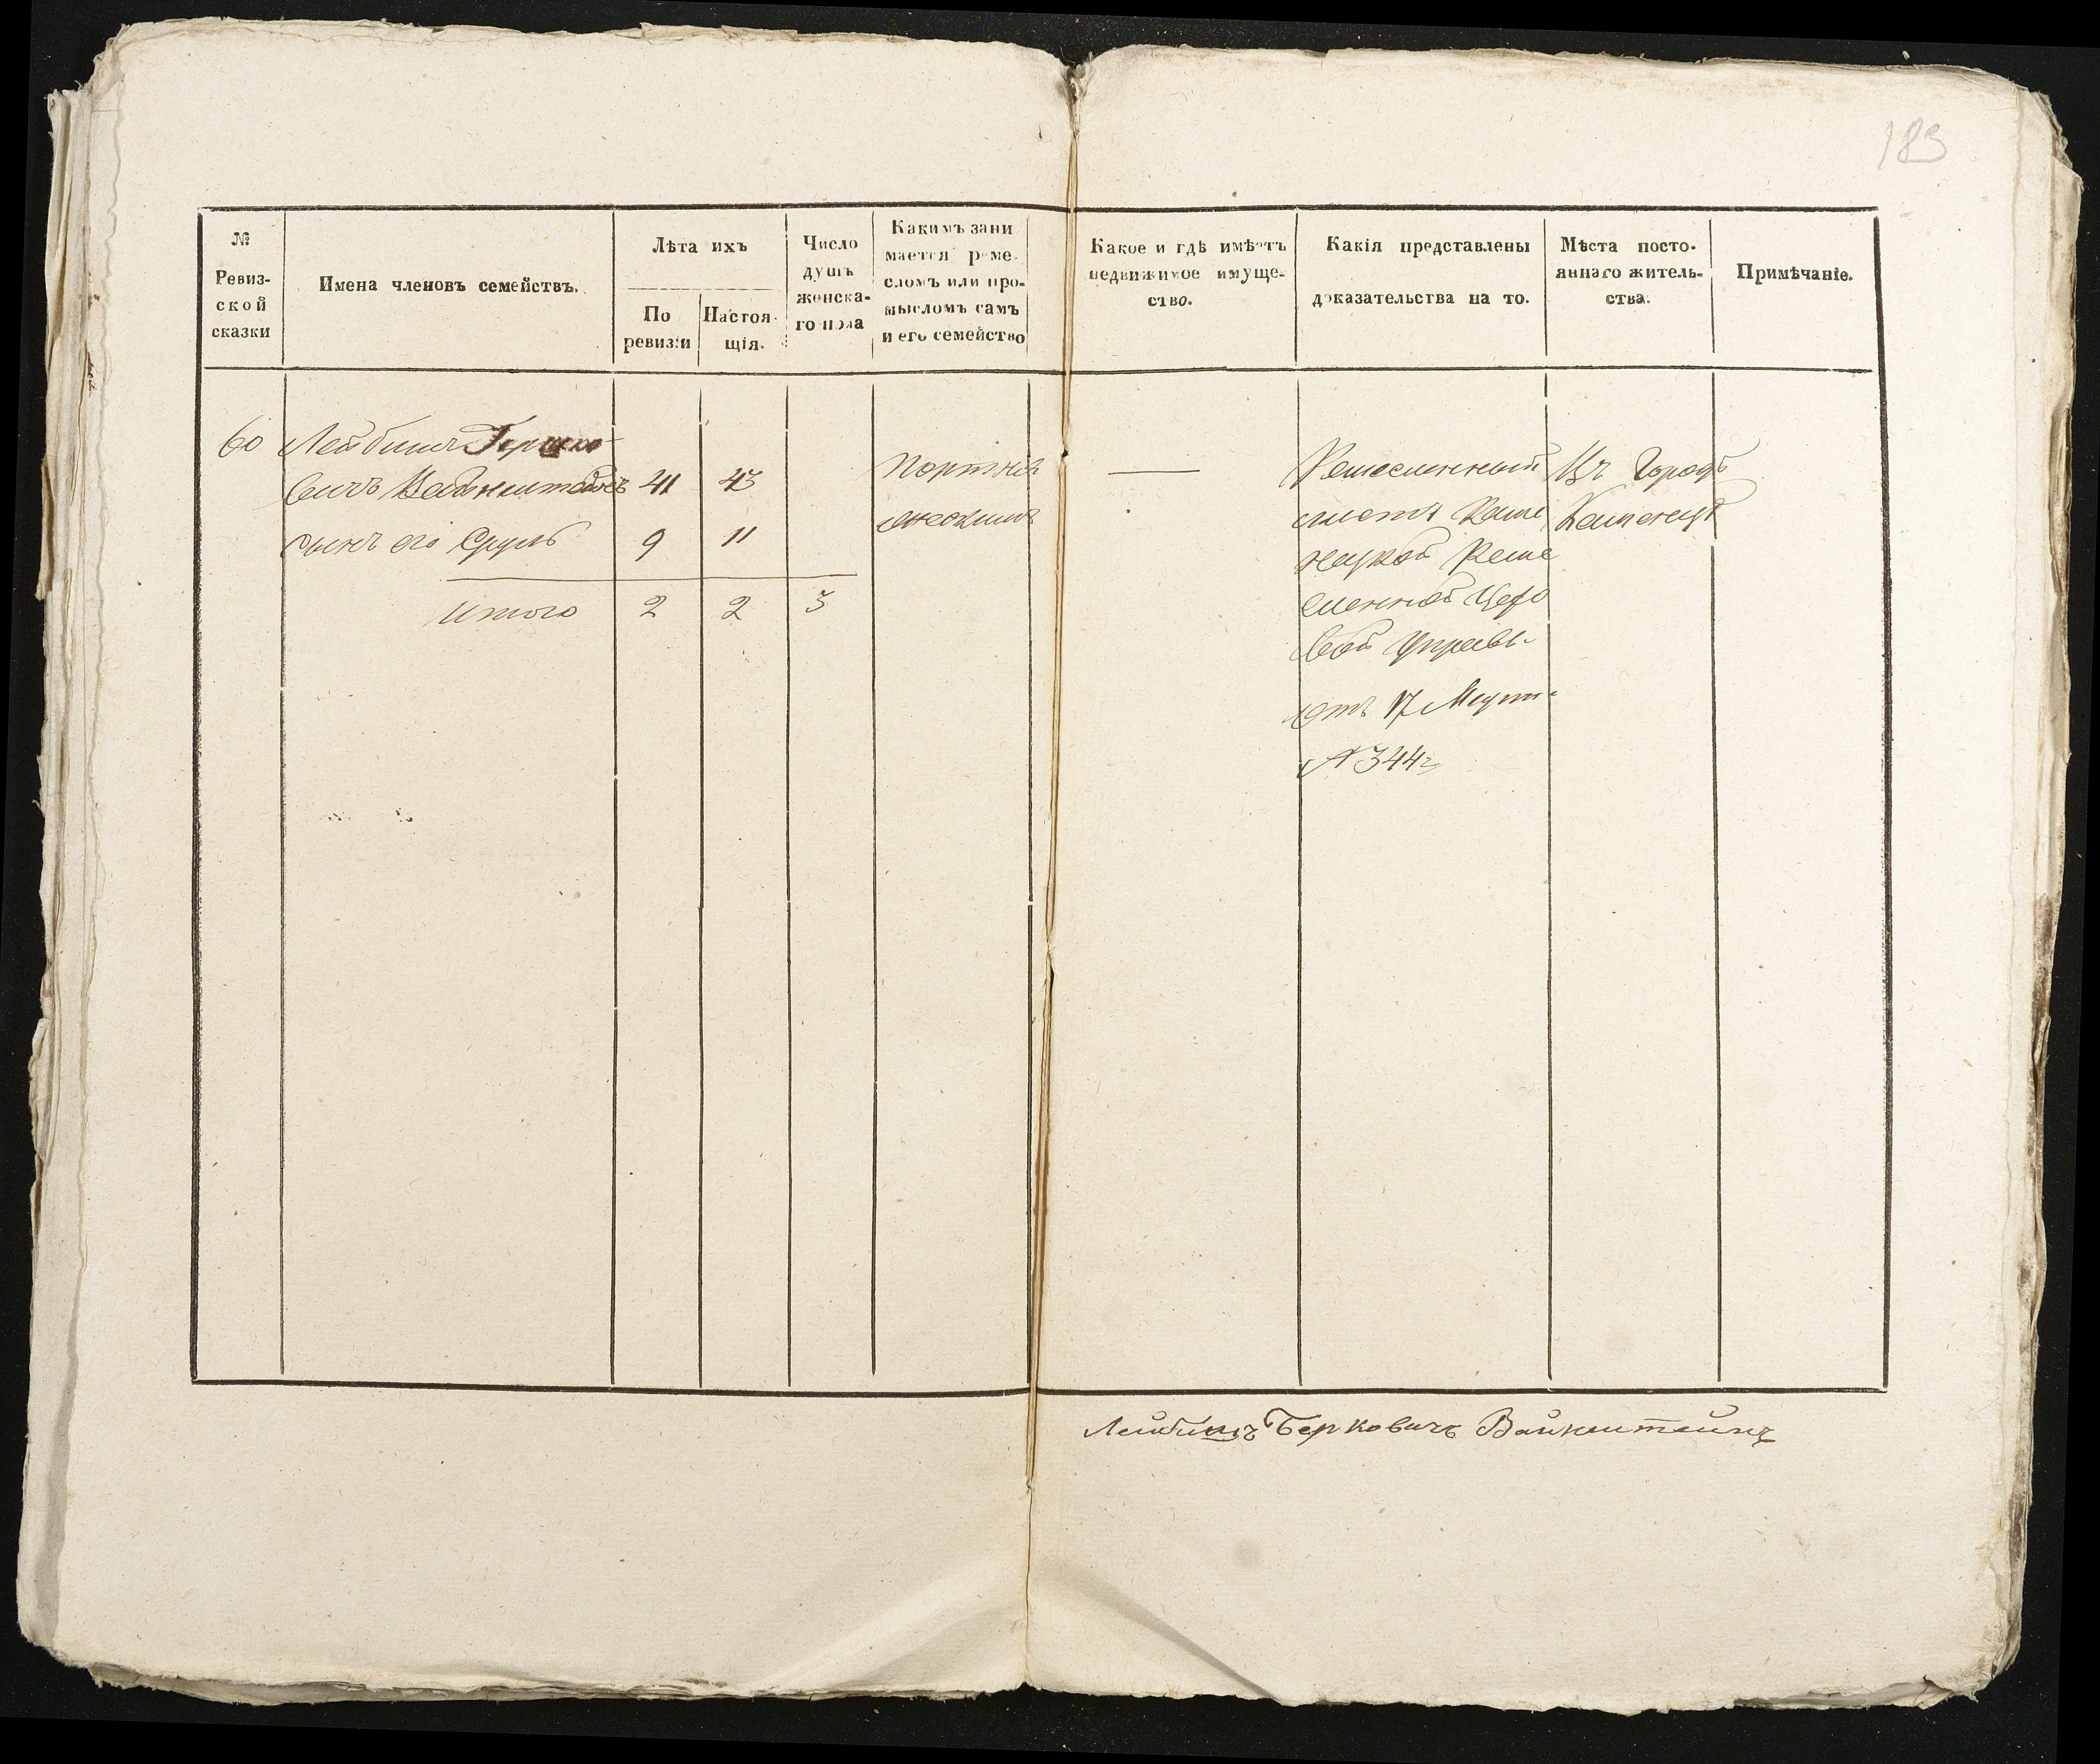 183
№
Ревиз-
ской
сказки
Имена членовъ семействъ.
Лѣта ихъ
По
ревизіи
Настоя-
щія.
Число
душъ
женска-
го пола
Какимъ зани
мается реме-
сломъ или про-
мысломъ самъ
и его семейство
Какое и гдѣ имѣетъ
недвижимое имуще-
ство.
Какія представлены
доказательства на то.
Мѣста посто-
яннаго житель-
ства.
Примѣчаніе.
60 Лейбишъ
вичъ Вайнштейнъ 41 43
сынъ его Сруль 9 11
Итого 2 2 3
Портнів
Ремесленный
листъ Каме
нецкой Реме
сленной Цехо
вой Управы
отъ 17 Марта
№ 344
Въ Городѣ
Каменецѣ
Лейбишъ Берковичъ Вайнштейнъ